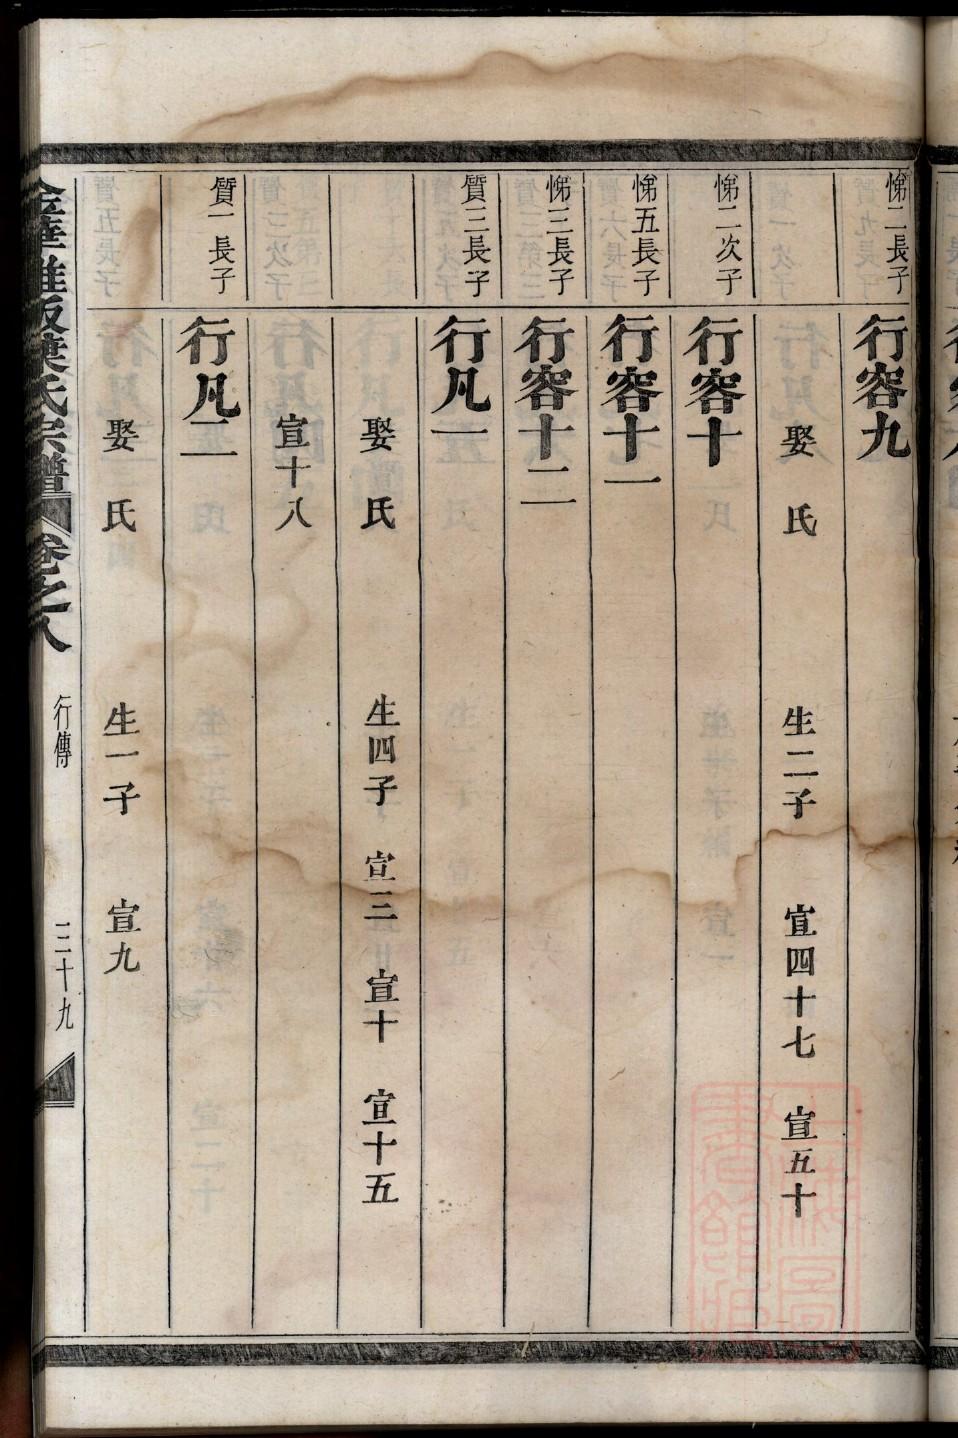 悌二長子
行容九
娶 氏 生二子 宣四十七 宣五十
悌二次子
行容十
悌五長子
行容十一
悌三長子
行容十二
質三長子
行凡一
娶 氏 生四子 宣三 宣十 宣十五
宣十八
質一長子
行凡二
娶 氏 生一子 宣九
金華 葉氏宗譜 卷之八 行傳 三十九